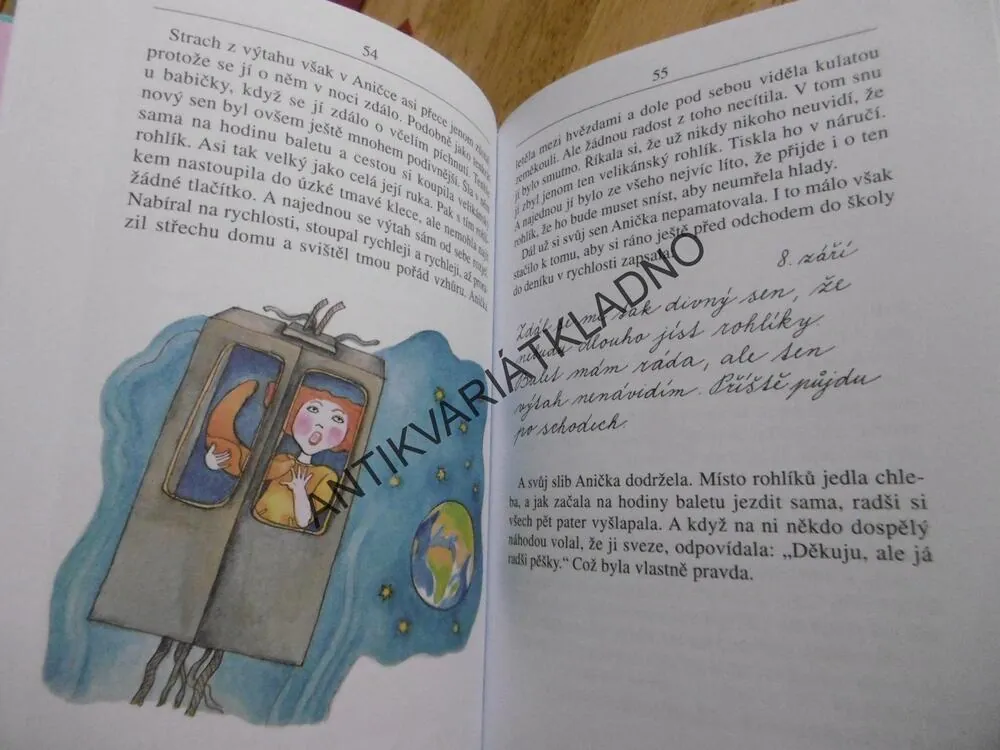 54
Strach z výtahu však v Aničce asi přece jenom
protože se jí o něm v noci zdálo. Podobně jako
u babičky, když se jí zdálo o včelím píchnutí. Tenhle
nový sen byl ovšem ještě mnohem podivnější. Šla v něm
sama na hodinu baletu a cestou si koupila velikánský
rohlík. Asi tak velký jako celá její ruka. Pak s tím
kem nastoupila do úzké tmavé klece, ale nemohla najít
žádné tlačítko. A najednou se výtah sám od sebe rozjel.
Nabíral na rychlosti, stoupal rychleji a rychleji, až prora-
zil střechu domu a svištěl tmou pořád vzhůru. Anička
55
letěla mezi hvězdami a dole pod sebou viděla kulatou
zeměkouli. Ale žádnou radost z toho necítila. V tom snu
jí bylo smutno. Říkala si, že už nikdy nikoho neuvidí, že
jí zbyl jenom ten velikánský rohlík. Tiskla ho v náručí.
A najednou jí bylo ze všeho nejvíc líto, že přijde i o ten
rohlík, že ho bude muset sníst, aby neumřela hlady.
Dál už si svůj sen Anička nepamatovala. I to málo však
stačilo k tomu, aby si ráno ještě před odchodem do školy
do deníku v rychlosti zapsala:
8. září
Zdál se mi tak divný sen, že
nebudu dlouho jíst rohlíky.
Balet mám ráda, ale ten
výtah nenávidím. Příště půjdu
po schodech.
A svůj slib Anička dodržela. Místo rohlíků jedla chle-
ba, a jak začala na hodiny baletu jezdit sama, radši si
všech pět pater vyšlapala. A když na ni někdo dospělý
náhodou volal, že ji sveze, odpovídala: „Děkuju, ale já
radši pěšky.“ Což byla vlastně pravda.
ANTIKVARIÁTKLADNO